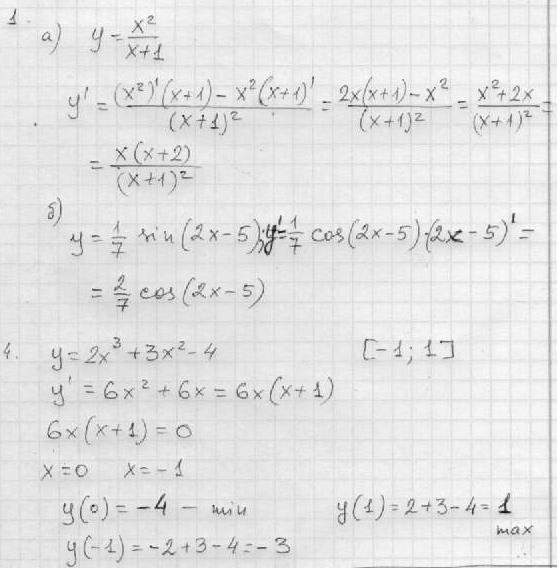 1.
а) y = x²/(x+1)
y' = ((x²)'(x+1) − x²(x+1)')/(x+1)² = (2x(x+1) − x²)/(x+1)² = (x²+2x)/(x+1)² =
= x(x+2)/(x+1)²
б)
y = 1/7 sin(2x−5); y' = 1/7 cos(2x−5)·(2x−5)' =
= 2/7 cos(2x−5)
4. y = 2x³ + 3x² − 4 [−1; 1]
y' = 6x² + 6x = 6x(x+1)
6x(x+1) = 0
x = 0 x = −1
y(0) = −4 − min y(1) = 2+3−4 = 1
max
y(−1) = −2+3−4 = −3